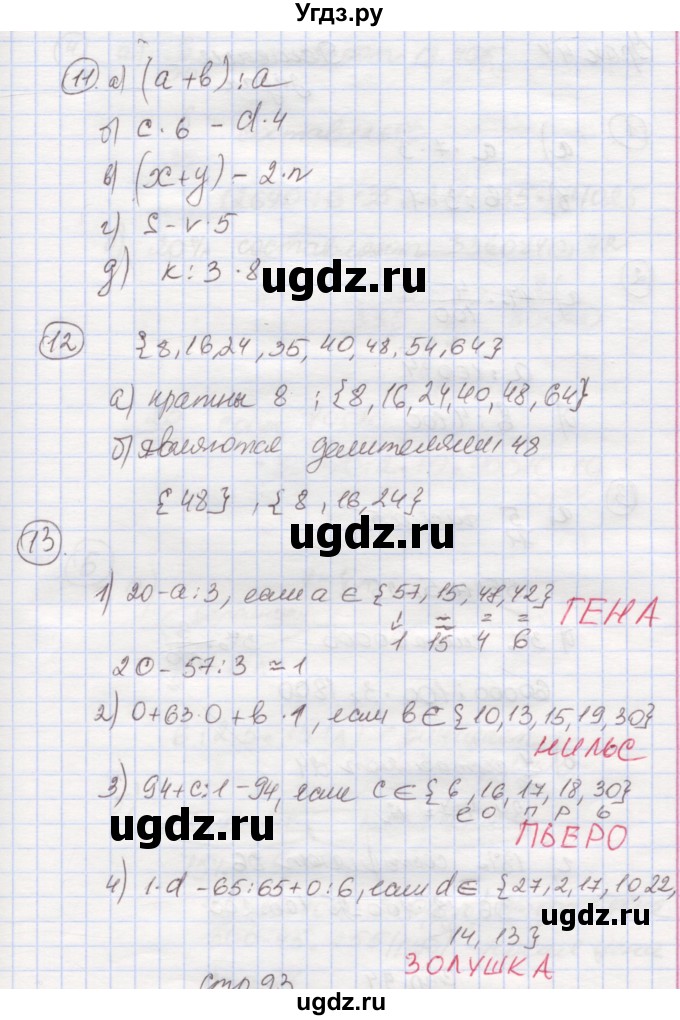 Угдз.ру
11 а) (a+b):a
б) c·6 - d·4
в) (x+y) - 2·n
г) S-v·5
д) k:3·8
ugdz.ru
12 {8,16,24,35,40,48,54,64}
а) кратны 8 ; {8,16,24,40,48,64}
б) являются делителями 48
{48}, {8,16,24}
ugdz.ru
13.
1) 20-a:3, если a ∈ {57,15,48,42}
↓ ≈ = =
1 15 4 6
ГЕНА
20-57:3 ≈ 1
2) 0+63·0+b·1, если b∈{10,13,15,19,30}
НИЛЬС
3) 94+c:1-94, если c∈{6,16,17,18,30}
е о п р ь
ugdz.ru
ПЬЕРО
4) 1·d -65:65+0:6, если d∈ {27,2,17,10,22,
ugdz.ru
14, 13}
ЗОЛУШКА
стр 93
ugdz.ru